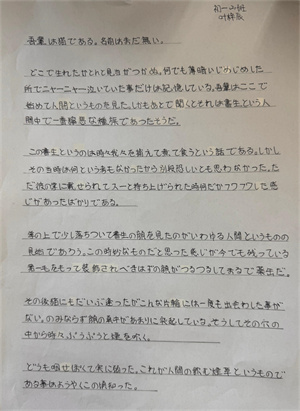 初一(2)班
叶梓辰
吾輩は猫である。名前はまだ無い。
どこで生れたかとんと見当がつかぬ。何でも薄暗いじめじめした
所でニャーニャー泣いていた事だけは記憶している。吾輩はここで
始めて人間というものを見た。しかもあとで聞くとそれは書生という人
間中で一番獰悪な種族であったそうだ。
この書生というのは時々我々を捕えて煮て食うという話である。しかし
その当時は何という考もなかったから別段恐しいとも思わなかった。た
だ彼の掌に載せられてスーと持ち上げられた時何だかフワフワした感
じがあったばかりである。
掌の上で少し落ちついて書生の顔を見たのがいわゆる人間というものの
見始であろう。この時妙なものだと思った感じが今でも残っている
第一毛をもって装飾されべきはずの顔がつるつるしてまるで薬缶だ。
その後猫にもだいぶ逢ったがこんな片輪には一度も出会わした事が
ない。のみならず顔の真中があまりに突起している。そうしてその穴の
中から時々ぷうぷうと煙を吹く。
どうも咽せぽくて実に弱った。これが人間の飲む煙草というもので
ある事はようやくこの頃知った。